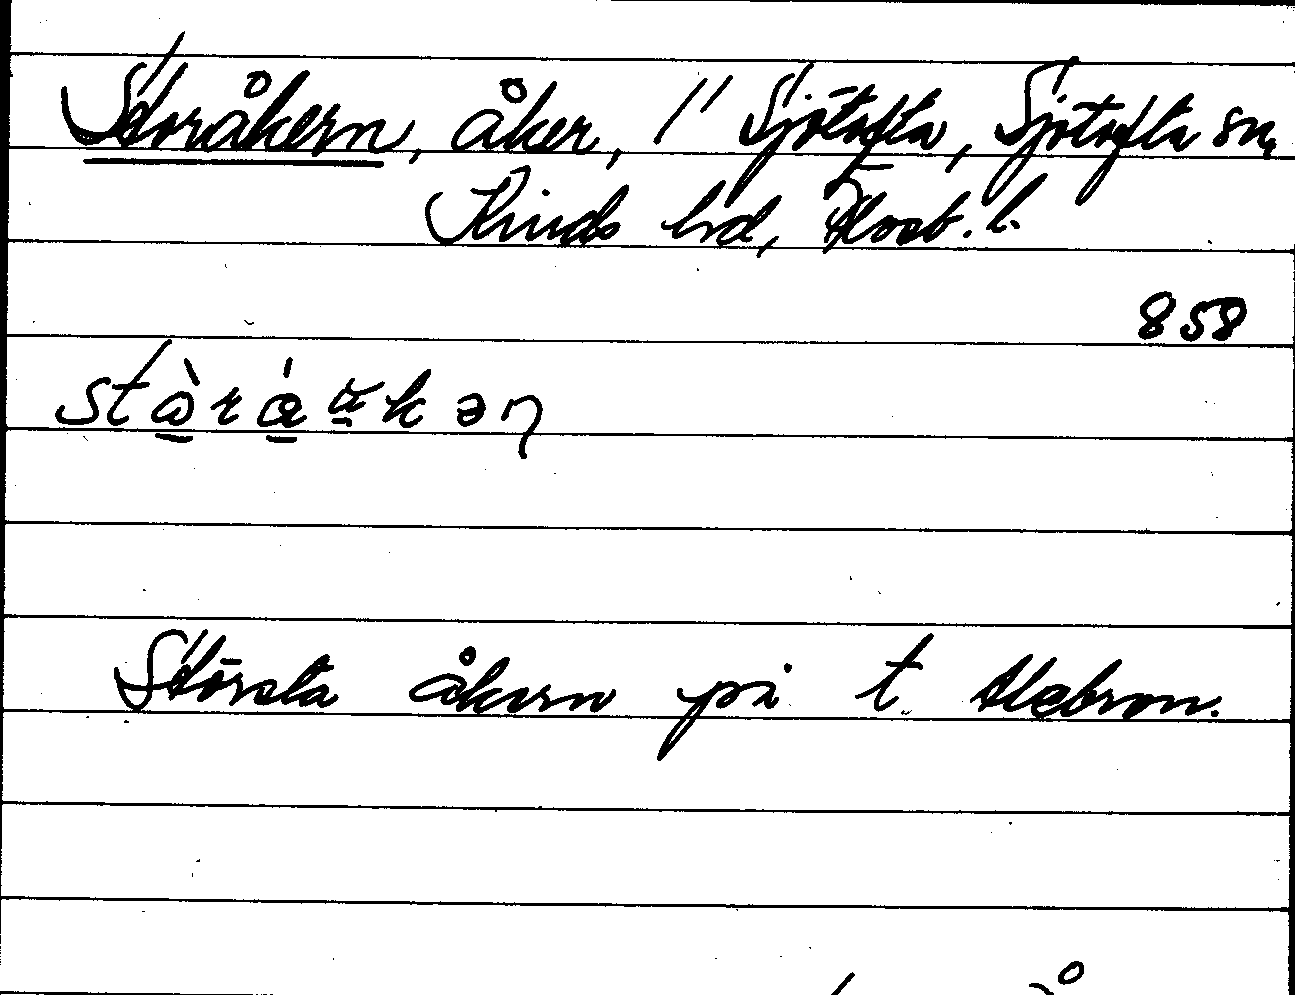 Storåkern, åker, 1" Sjötofta, Sjötofta sn,
Kinds hd, Älvsb. l.
858
Största åkern på t.